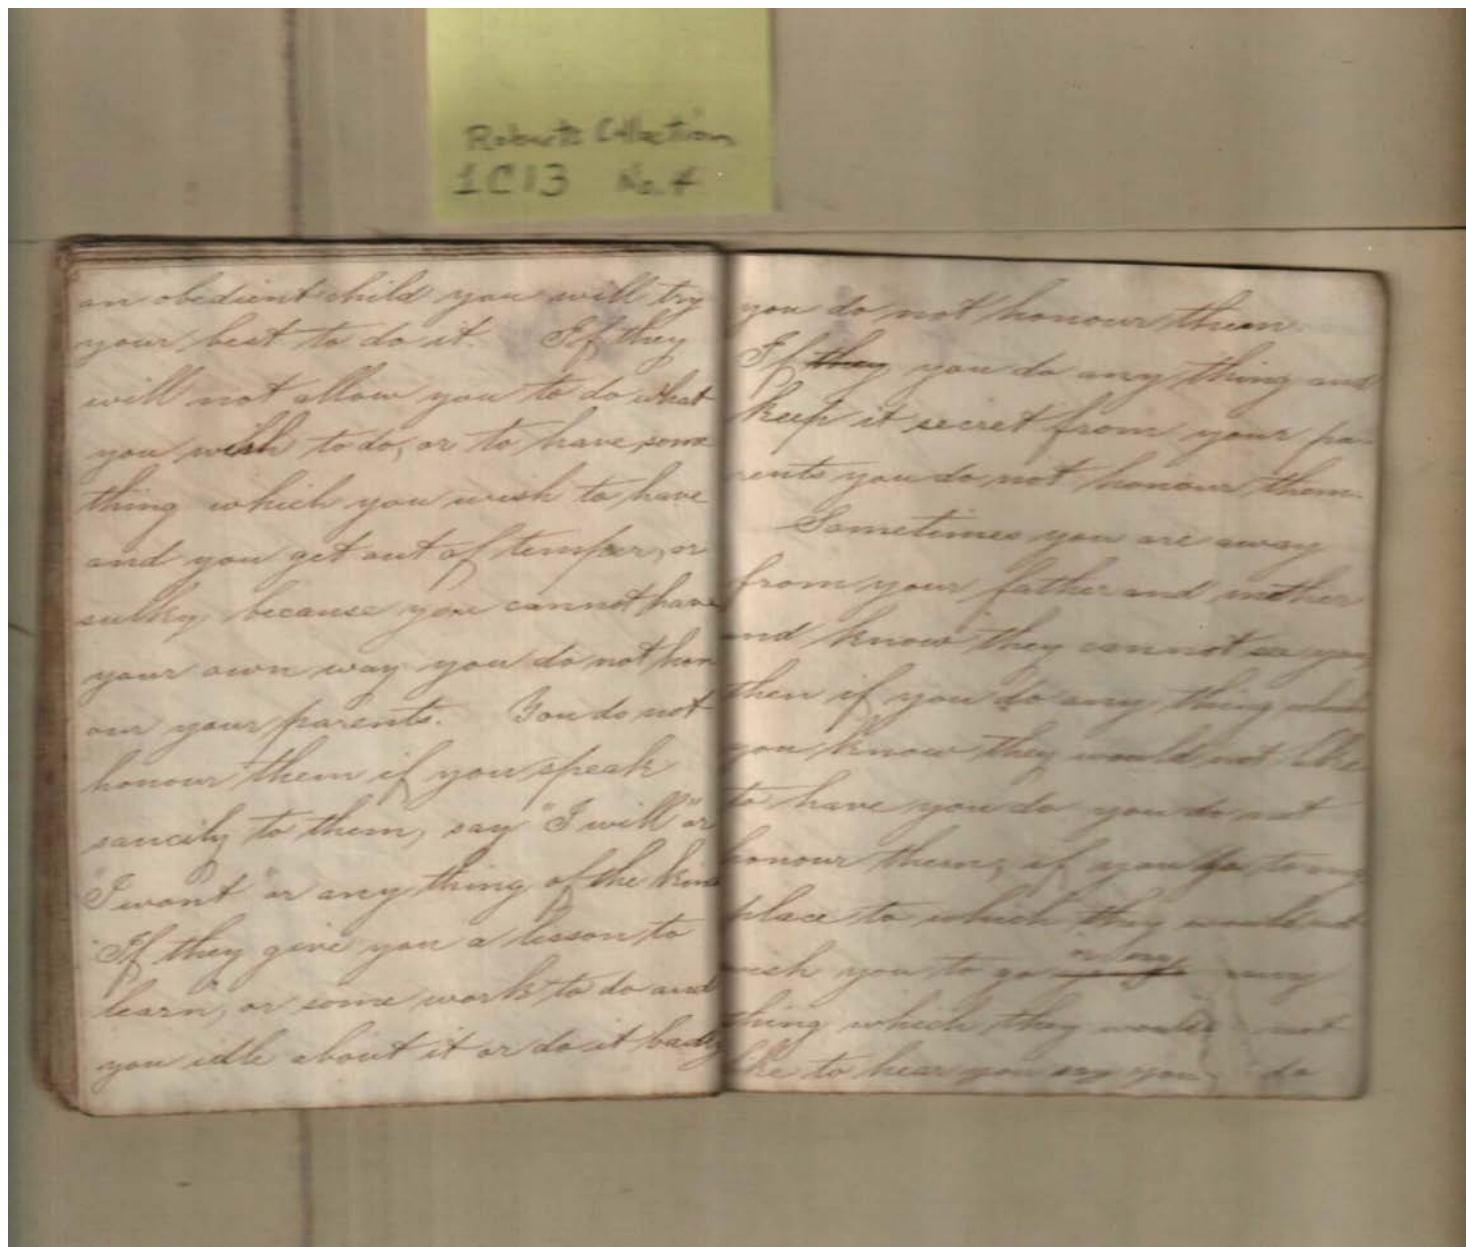 Roberts Collection
1C13 No. 4
an obedient child you will try
your best to do it. If they
will not allow you to do what
you wish to do, or to have some
thing which you wish to have
and you get out of temper, or
sulky because you cannot have
your own way you do not hon
our your parents. You do not
honour them if you speak
saucily to them, say "I will" or
"I wont" or any thing of the kind
If they give you a lesson to
learn, or some work to do and
you idle about it or do it badly
you do not honour them
If they you do any thing and
keep it secret from your pa
rents you do not honour them.
Sometimes you are away
from your father and mother
and know they cannot see you
then if you do any thing which
you know they would not like
to have you do you do not
honour them; if you go to any
place to which they would not
wish you to go or say any
thing which they would not
like to hear you say you do